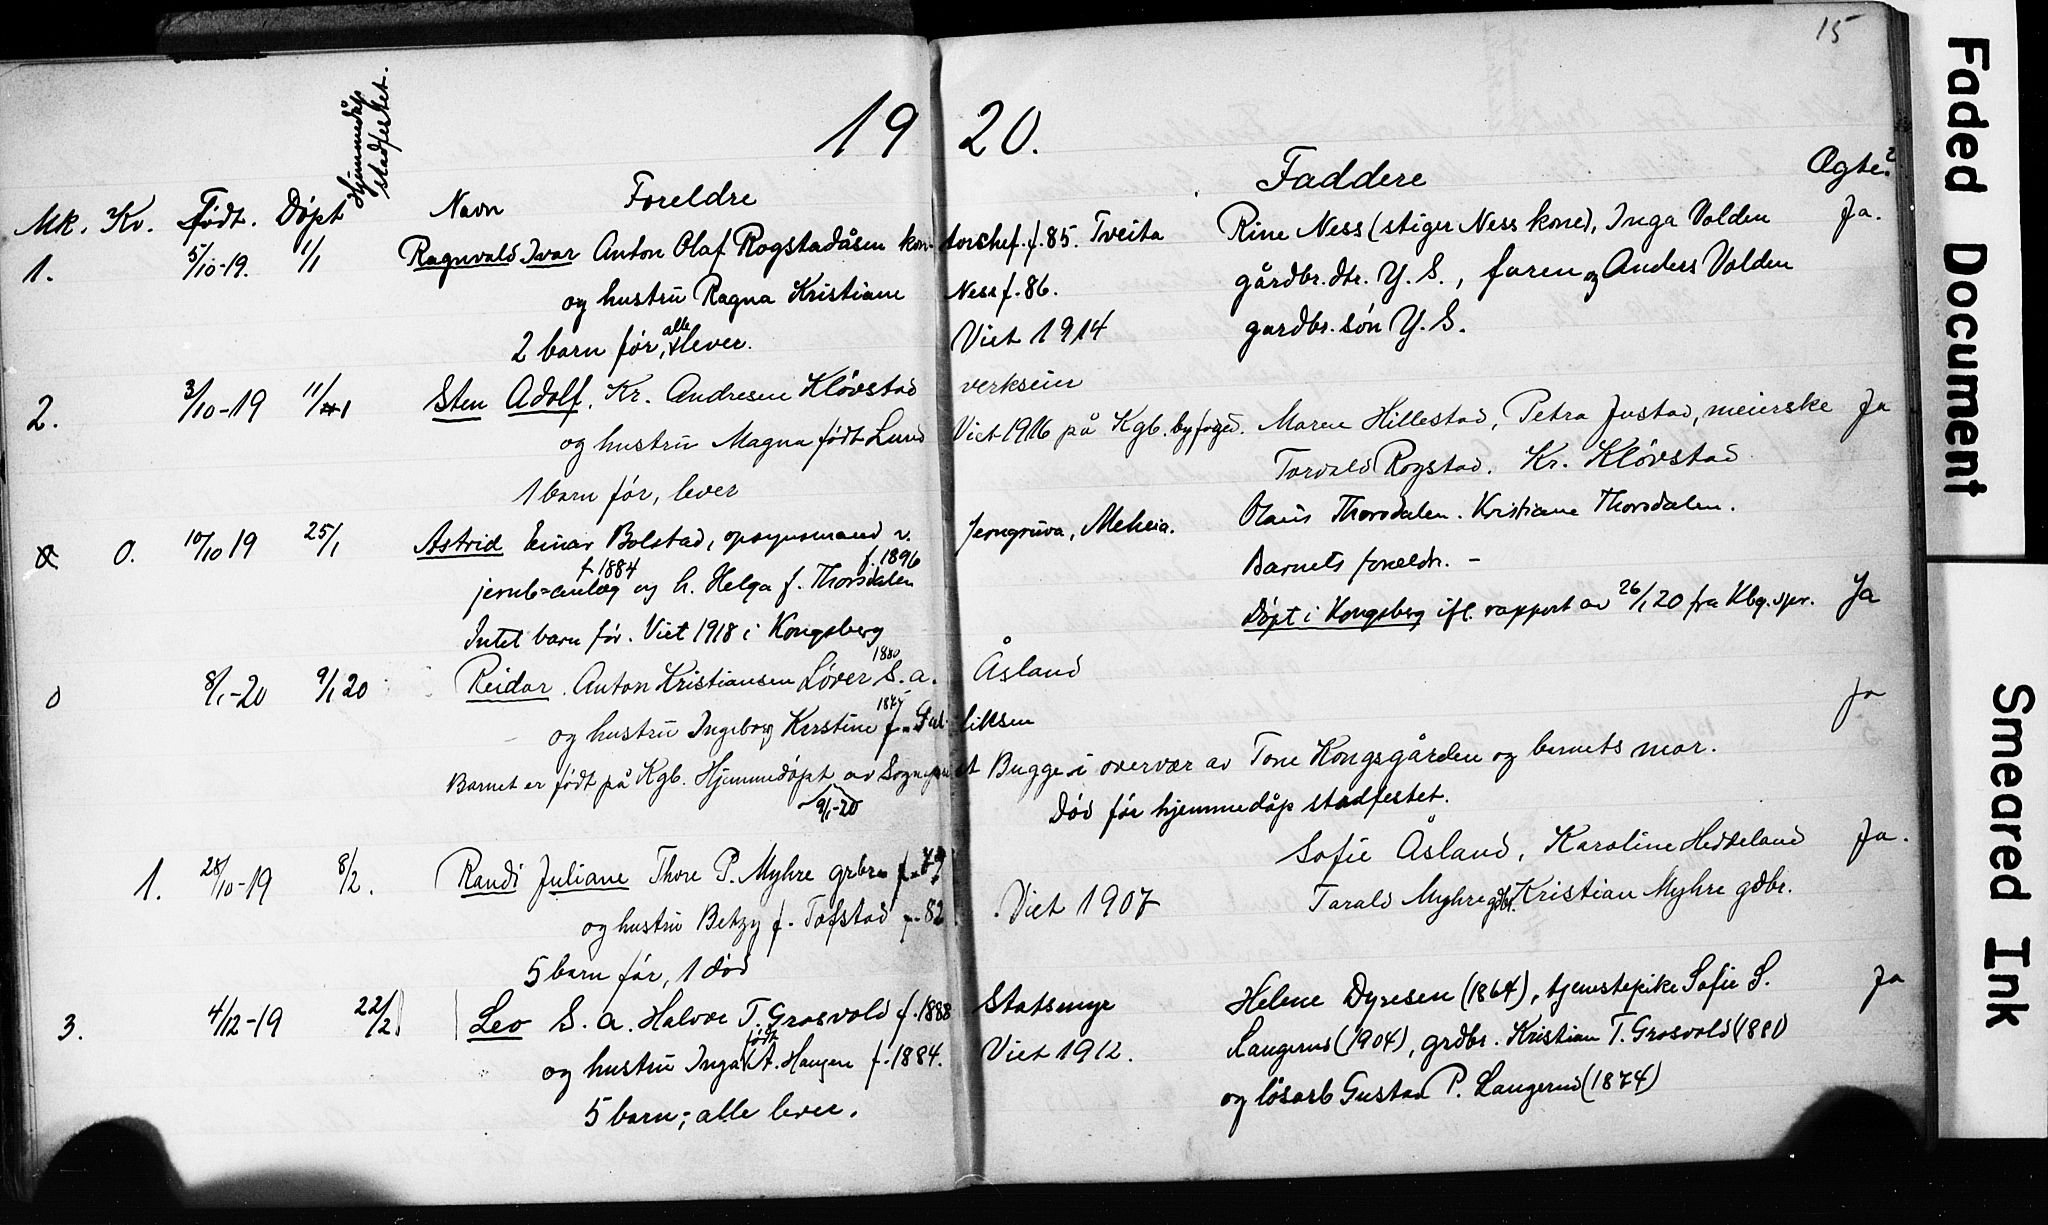 15
1920.
Hjemmedåp stadfestet.
Mk. Kv. Født. Døpt Navn Foreldre Faddere Ægte?
1. 5/10-19. 1/1 Ragnvald Ivar Anton Olaf Rogstadåsen kontorchef. f. 85. Tveita Rine Ness (stiger Ness kone), Inga Volden Ja.
og hustru Ragna Kristiane Ness f. 86. gårdbr. dtr. Y. S., faren og Anders Volden
2 barn før, alle lever. Viet 1914 gardbr. søn Y. S.
2. 3/10-19 11/1 Sten Adolf. Kr. Andresen Kløvstad verkseier
og hustru Magna født Lund Viet 1916 på Kgb. byfoged. Maren Hillestad, Petra Justad, meierske Ja
1 barn før, lever Torvald Rogstad. Kr. Kløvstad
0. 10/10 19 25/1 Astrid Einar Bolstad, opsynsmand v. Jerngruva, Meheia. Olaus Thorsdalen. Kristiane Thorsdalen.
f. 1884 f. 1896
jernb=anlæg og h. Helga f. Thorsdalen Barnets foreldr. -
Intet barn før. Viet 1918 i Kongsberg Døpt i Kongsberg ifl. rapport av 26/1 20 fra Kbg. spr. Ja
1880
0 8/1-20 9/1 20 Reidar. Anton Kristiansen Løver S. a. Åsland Ja
og hustru Ingeborg Kirstine f.
Barnet er født på Kgb. Hjemmedøpt av Sogneprest Bugge i overvær av Tone Kongsgården og barnets mor.
9/1-20 Død før hjemmedåp stadfestet.
1. 28/10-19 8/2. Randi Juliane Thore P. Myhre grbr. f. 79 Sofie Åsland, Karoline Hedseland Ja.
og hustru Betzy f. Tofstad f. 82 Viet 1907 Tarald Myhre gdbr. Kristian Myhre gdbr.
5 barn før, 1 død
3. 4/12-19 22/2 Leo S. a. Halvor T. Grosvold f. 1888 Statsmyr Helene Dyresen (1864), tjenestepike Sofie S. Ja
og hustru Inga født A. Haugen f. 1884. Viet 1912. Langerud (1904), grdbr. Kristian T. Grosvold (1881)
5 barn; alle lever. og løsarb Gustav P. Langerud (1874)
Faded Document
Smeared Ink